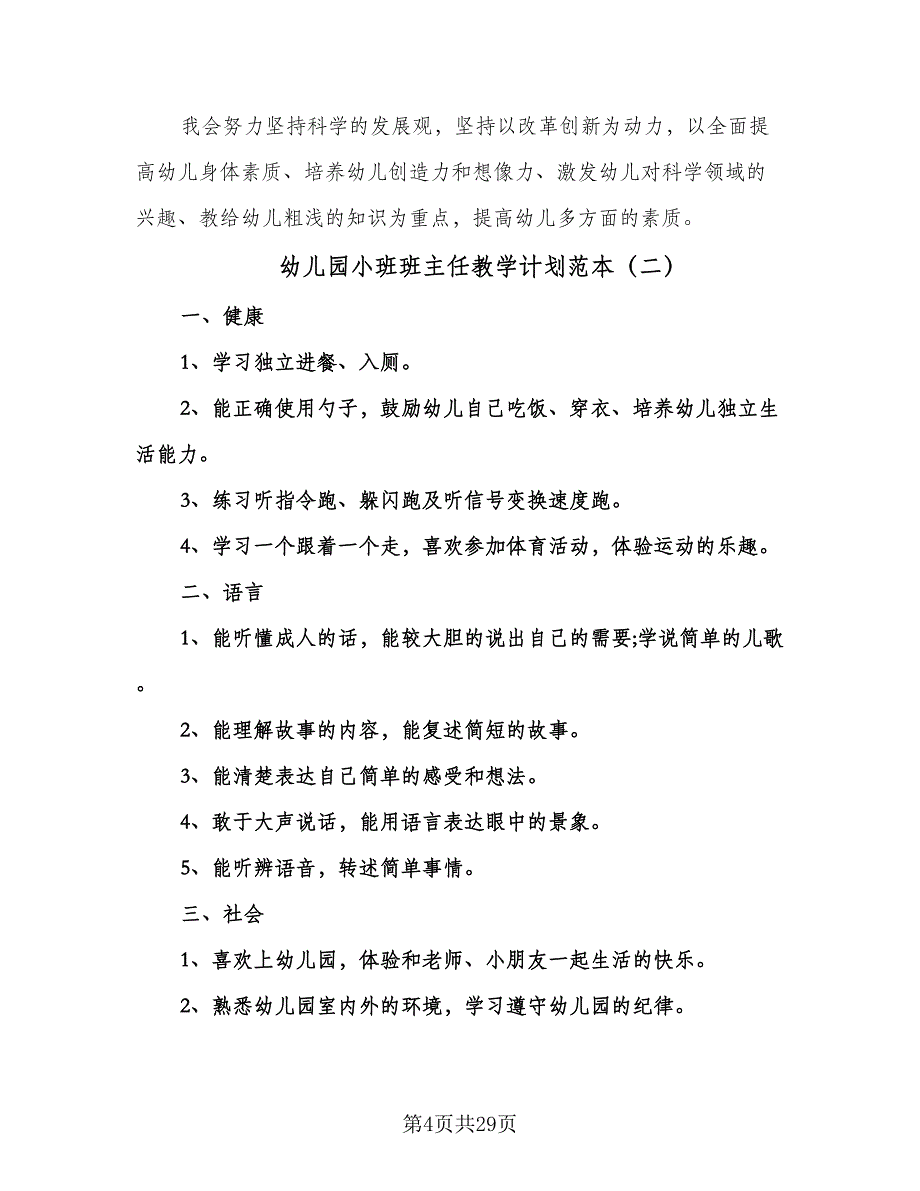 我会努力坚持科学的发展观，坚持以改革创新为动力，以全面提
高幼儿身体素质、培养幼儿创造力和想像力、激发幼儿对科学领域的
兴趣、教给幼儿粗浅的知识为重点，提高幼儿多方面的素质。
幼儿园小班班主任教学计划范本（二）
一、健康
1、学习独立进餐、入厕。
2、能正确使用勺子，鼓励幼儿自己吃饭、穿衣、培养幼儿独立生
活能力。
3、练习听指令跑、躲闪跑及听信号变换速度跑。
4、学习一个跟着一个走，喜欢参加体育活动，体验运动的乐趣。
二、语言
1、能听懂成人的话，能较大胆的说出自己的需要;学说简单的儿歌
。
2、能理解故事的内容，能复述简短的故事。
3、能清楚表达自己简单的感受和想法。
4、敢于大声说话，能用语言表达眼中的景象。
5、能听辨语音，转述简单事情。
三、社会
1、喜欢上幼儿园，体验和老师、小朋友一起生活的快乐。
2、熟悉幼儿园室内外的环境，学习遵守幼儿园的纪律。
第4页共29页